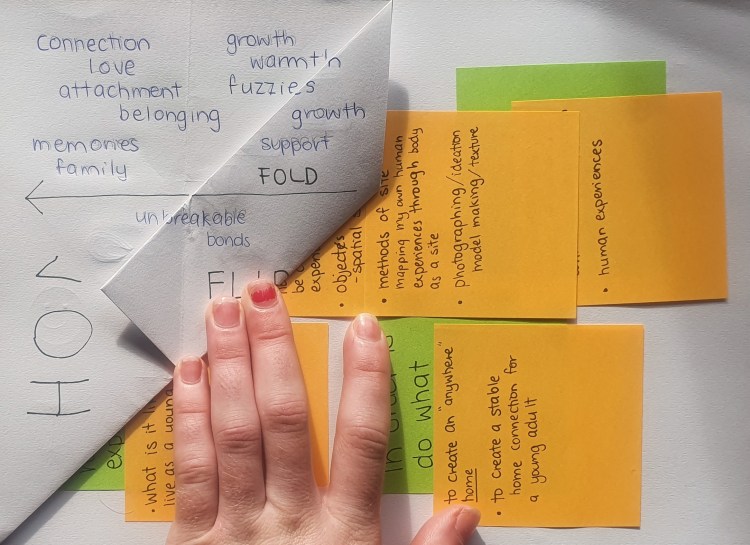 connection
love
attachment
belonging
memories
family
growth
warmth
fuzzies
growth
support
FOLD
unbreakable
bonds
• what is it
live as a
- spatial
• methods of site
mapping my own human
experiences through body
as a site
• photographing/ideation
model making/texture
• human experiences
do what
to create an "anywhere"
home
• to create a stable
home connection for
a young adult